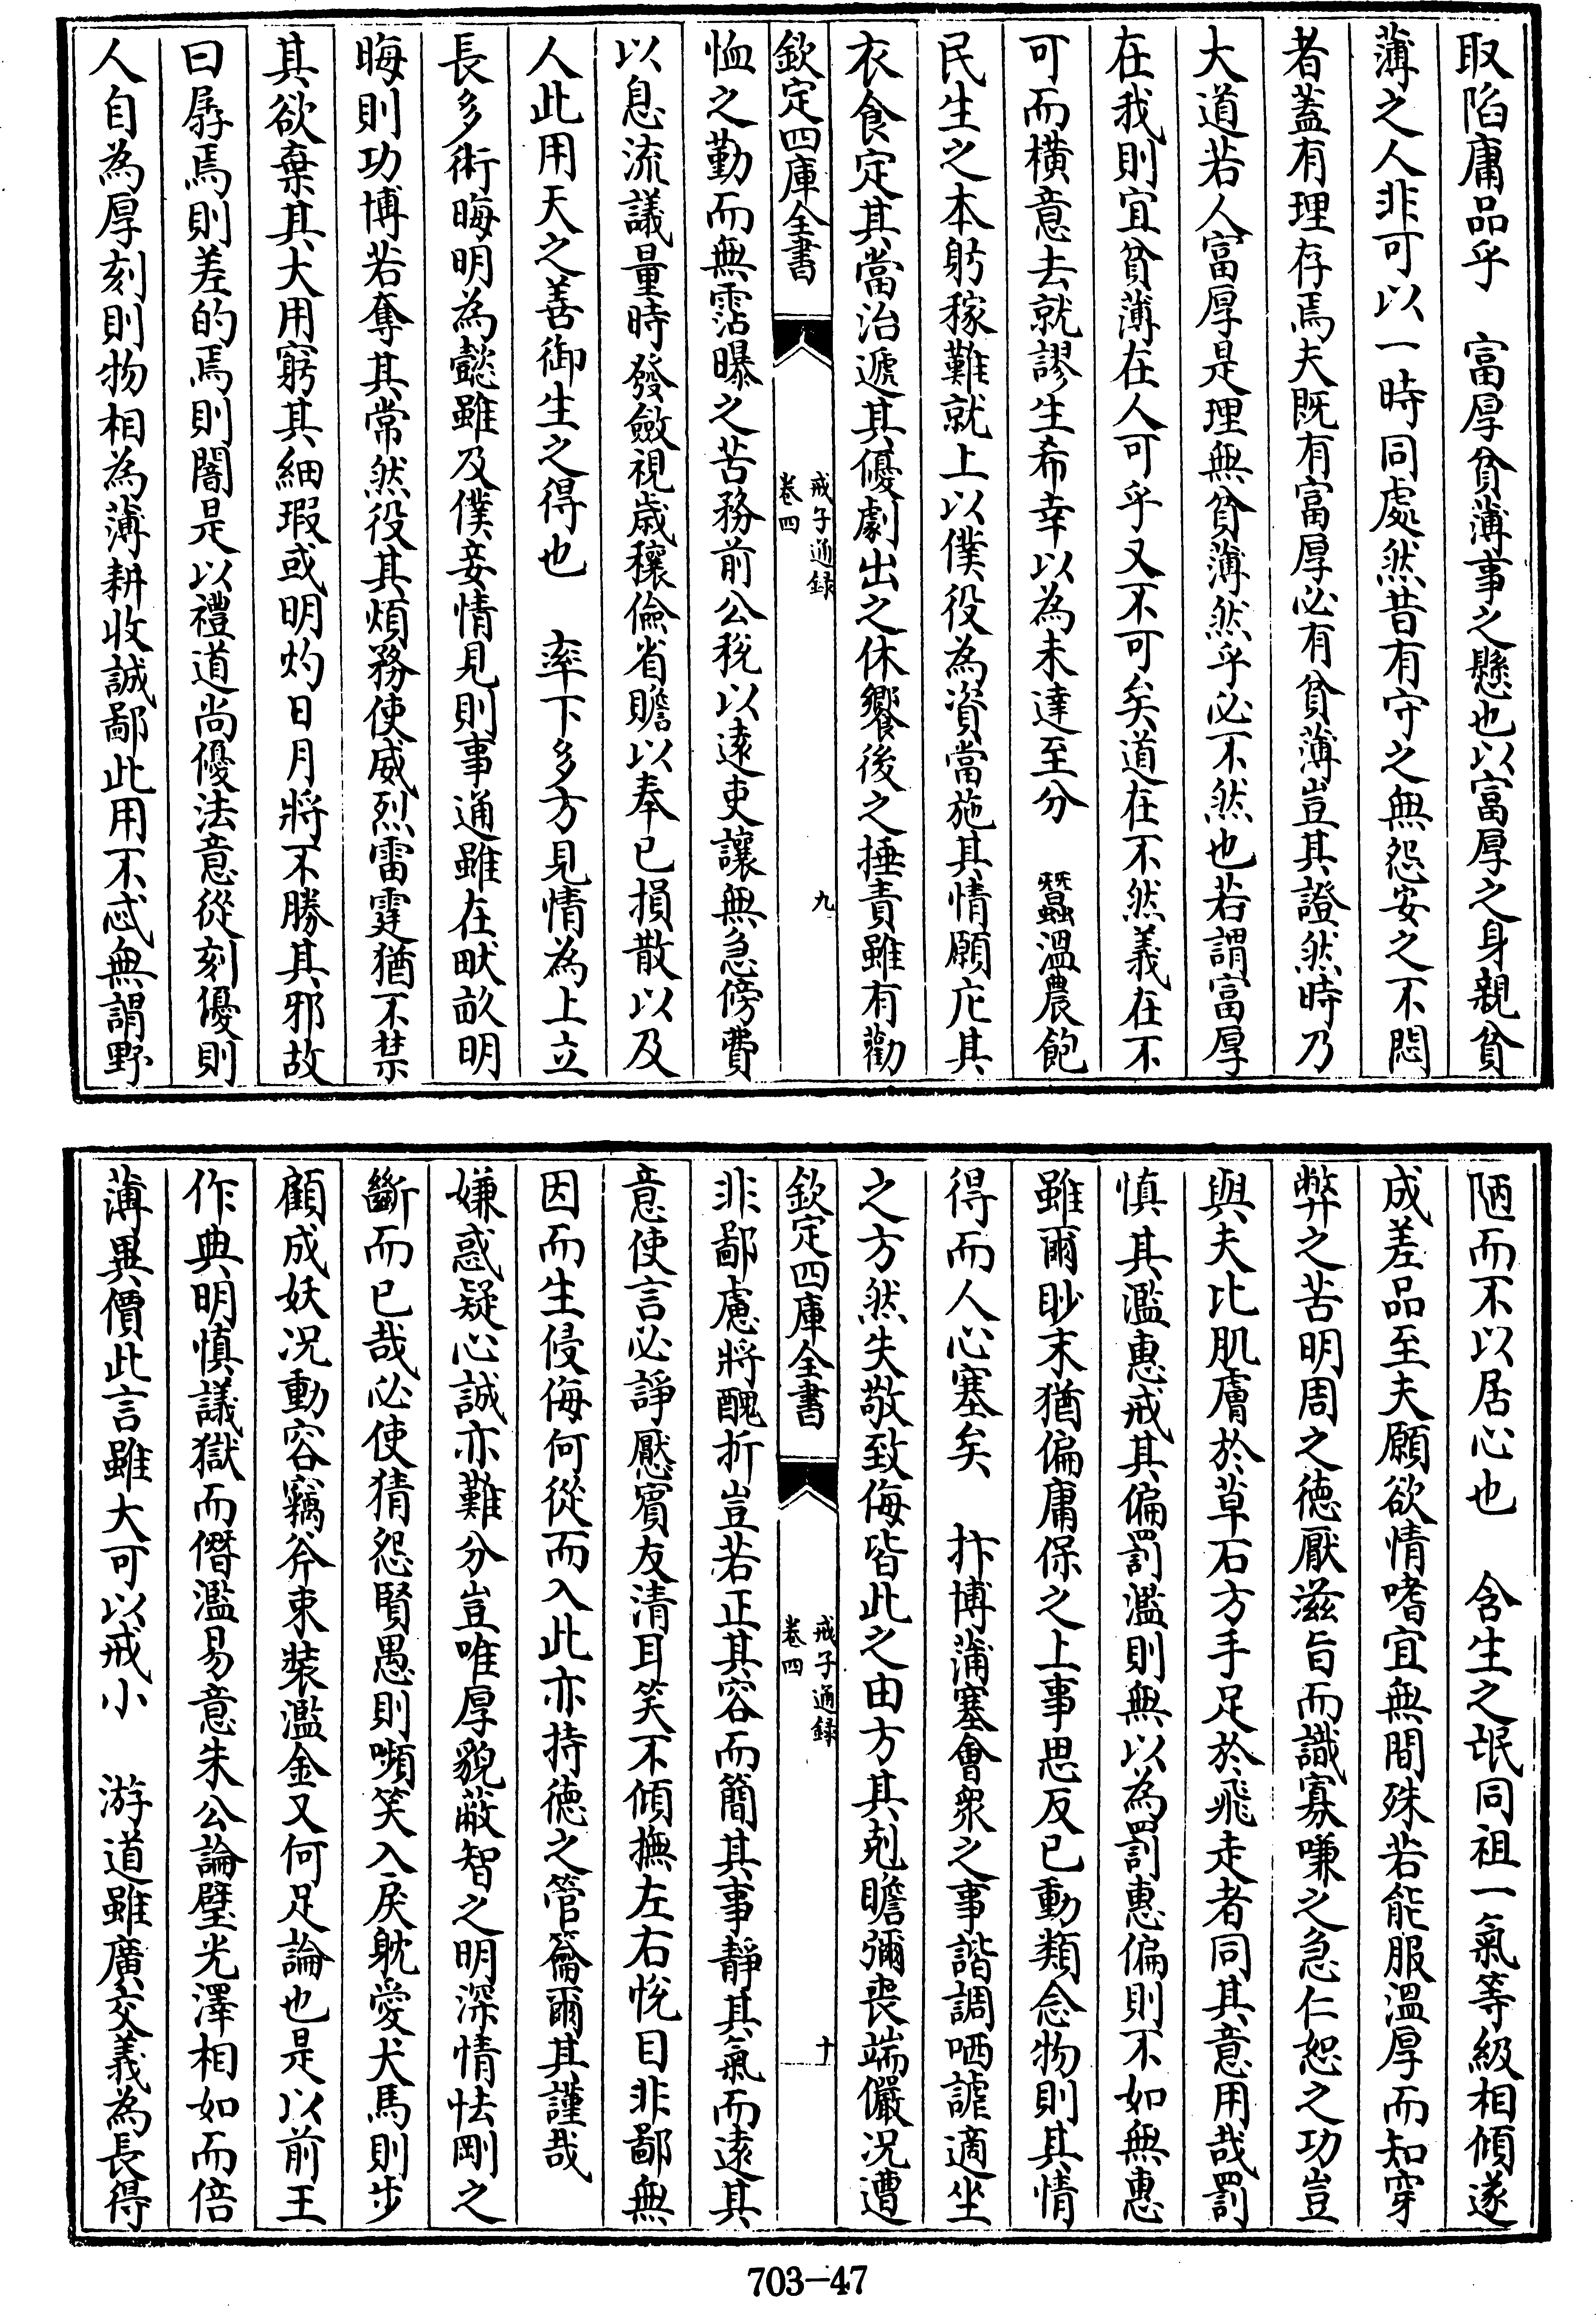 取陷庸品乎　富厚貧薄事之懸也以富厚之身親貧
薄之人非可以一時同處然昔有守之無怨安之不悶
者蓋有理存焉夫既有富厚必有貧薄豈其證然時乃
大道若人富厚是理無貧薄然乎必不然也若謂富厚
在我則宜貧薄在人可乎又不可矣道在不然義在不
可而橫意去就謬生希幸以為未達至分　蠶溫農飽
民生之本躬稼難就上以僕役為資當施其情願庀其
衣食定其當治遞其優劇出之休饗後之捶責雖有勸
欽定四庫全書
戒子通錄
卷四
九
恤之勤而無霑曝之苦務前公稅以遠吏讓無急傍費
以息流議量時發斂視歲穰儉省贍以奉已損散以及
人此用天之善御生之得也　率下多方見情為上立
長多術晦明為懿雖及僕妾情見則事通雖在畎畝明
晦則功博若奪其常然役其煩務使威烈雷霆猶不禁
其欲棄其大用窮其細瑕或明灼日月將不勝其邪故
曰孱焉則差的焉則闇是以禮道尚優法意從刻優則
人自為厚刻則物相為薄耕收誠鄙此用不忒無謂野
陋而不以居心也　含生之氓同祖一氣等級相傾遂
成差品至夫願欲情嗜宜無間殊若能服溫厚而知穿
弊之苦明周之德厭滋旨而識寡嗛之急仁恕之功豈
與夫比肌膚於草石方手足於飛走者同其意用哉罰
慎其濫惠戒其偏罰濫則無以為罰惠偏則不如無惠
雖爾眇末猶偏庸保之上事思反已動類念物則其情
得而人心塞矣　抃博蒲塞會衆之事諧調哂謔適坐
之方然失敬致侮皆此之由方其剋瞻彌喪端儼況遭
欽定四庫全書
戒子通錄
卷四
十
非鄙慮將醜折豈若正其容而簡其事靜其氣而遠其
意使言必諍懕賓友清耳笑不傾撫左右悅目非鄙無
因而生侵侮何從而入此亦持德之管籥爾其謹哉
嫌惑疑心誠亦難分豈唯厚貌蔽智之明深情怯剛之
斷而已哉必使猜怨賢愚則嚬笑入戾躭愛犬馬則步
顧成妖况動容竊斧束裝濫金又何足論也是以前王
作典明慎議獄而僭濫易意朱公論璧光澤相如而倍
薄異價此言雖大可以戒小　游道雖廣交義為長得
703-47